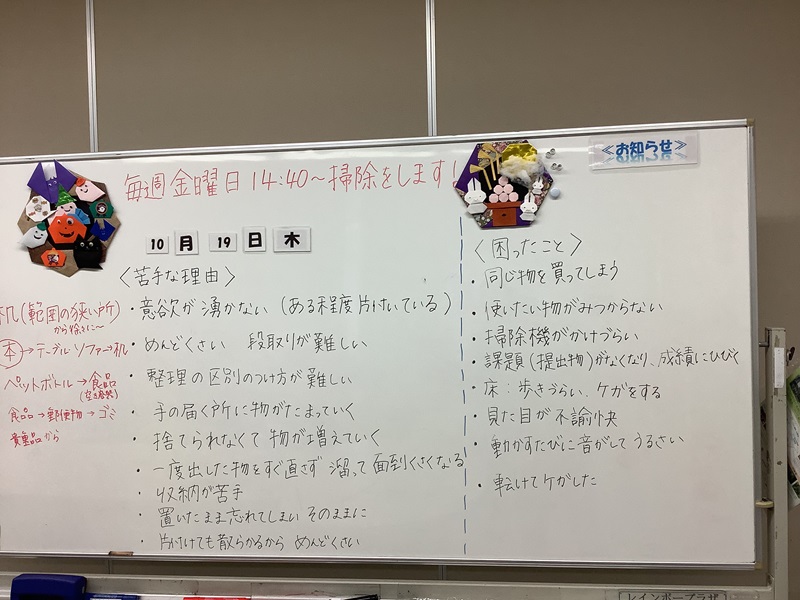 ≪お知らせ≫
毎週金曜日14:40～掃除をします!
10 月 19 日 木
〈苦手な理由〉
・意欲が湧かない (ある程度片付いている)
・めんどくさい 段取りが難しい
・整理の区別のつけ方が難しい
・手の届く所に物がたまっていく
・捨てられなくて物が増えていく
・一度出した物をすぐ直さず 溜って面倒くさくなる
・収納が苦手
・置いたまま忘れてしまい そのままに
・片付けても散らかるから めんどくさい
机(範囲の狭い所)
から徐々に～
本→テーブル ソファー→机
ペットボトル→食品
食品→郵便物→ゴミ
貴重品から
〈困ったこと〉
・同じ物を買ってしまう
・使いたい物がみつからない
・掃除機がかけづらい
・課題(提出物)がなくなり、成績にひびく
・床:歩きづらい、ケガをする
・見た目が不諭快
・動かすたびに音がして うるさい
・転けてケガした
レインボープラザ